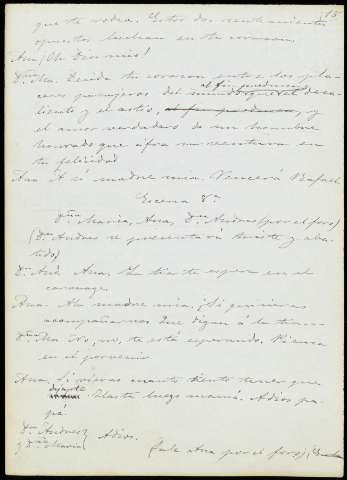 15
que te rodea. Estos dos sentimientos
opuestos luchan en tu corazon.
Ana ¡Oh Dios mio!
Dña Ma. Decida tu corazon entre los pla-
al fin producen
ceres pasajeros del mundo que el desa-
liento y el astio, al fin producen, y
el amor verdadero de un hombre
honrado que cifra su ventura en
tu felicidad
Ana A si madre mia. Vencerá Rafael
Escena Va
Dña Maria, Ana, Dn Andres (por el foro)
(Dn Andres se presentará triste y aba-
tido)
Dn And. Ana. Tu tia te espera en el
carruage.
Ana. Ah madre mia. ¡Si quisieras
acompañarnos
Dña Ma No, no, te está esperando. Piensa
en el porvenir
Ana ¡Si vieras cuanto siento tener que
dejarte
Hasta luego mamá. Adios pa-
pá
Dn Andres
y Dña Maria Adios.
(sale Ana por el foro)